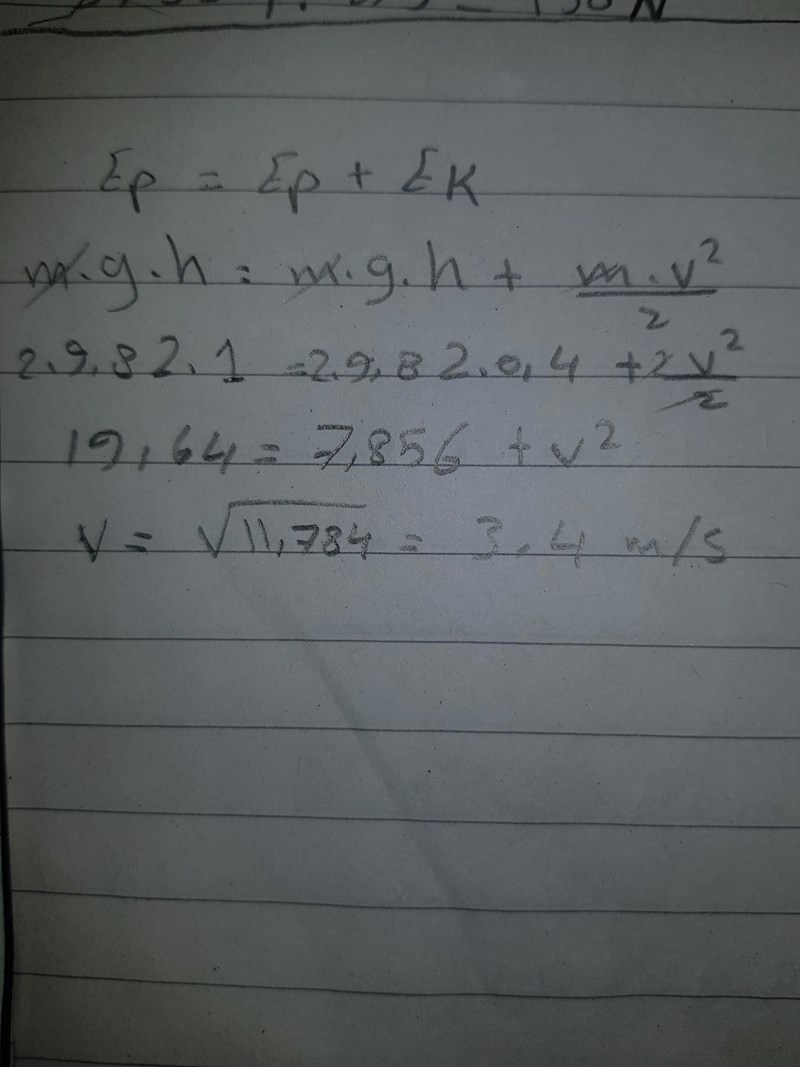 Ep = Ep + Ek
m.g.h = m.g.h + m.v²/2
2.9,82.1 = 2.9,82.0,4 + 2v²/2
19,64 = 7,856 + v²
v = √11,784 = 3.4 m/s